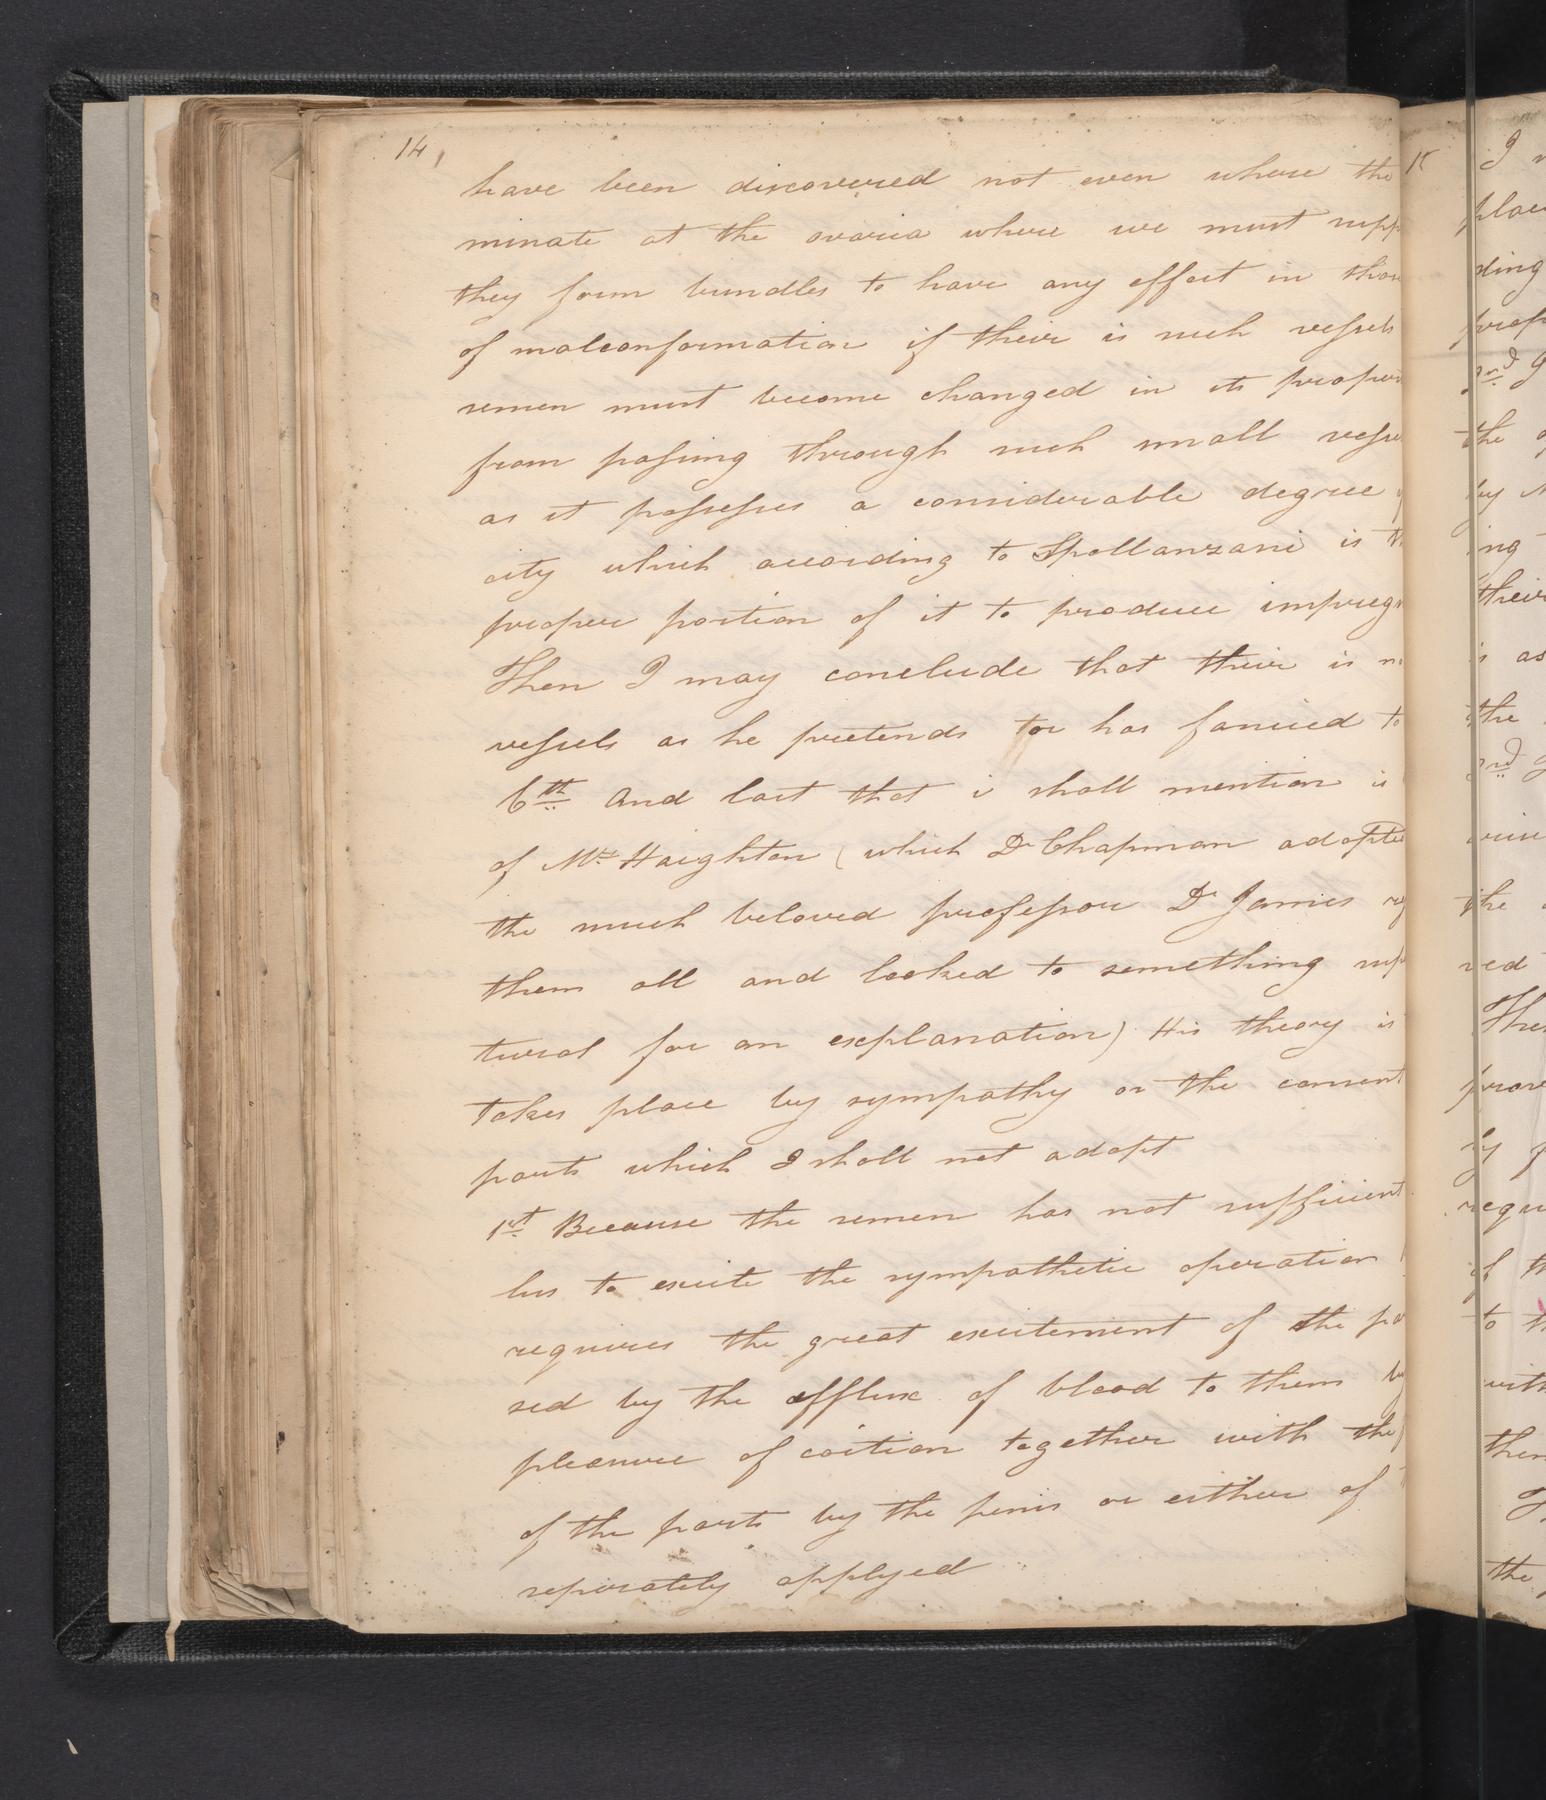 14
have been discovered not even where the
minate at the ovaria where we must supp
they form bundles to have any effect in thos
of malconformation if their is such vessels
semen must become changed in its proper
from passing through such small vesse
as it possesses a considerable degree
city which according to Spallanzani is th
proper portion of it to produce impregn
Then I may conclude that their is n
vessels as he pretends tor has fancied to
6th And last that i shall mention is
of Mr Haighton (which Dr Chapman adopted
the much beloved professor Dr James
them all and looked to something sup
tural for an explanation) His theory is
takes place by sympathy or the consent
parts which I shall not adopt
1st Because the semen has not sufficient
lus to excite the sympathetic operation
requires the great excitement of the pa
sed by the afflux of blood to them by
pleasure of coition together with the
of the parts by the penis or either of
seperately applyed
15
I
plac
ding
prop
2nd
the
by
ing
their
is as
the
3rd
the
ved
The
prov
by
requ
of th
to th
with
then
the